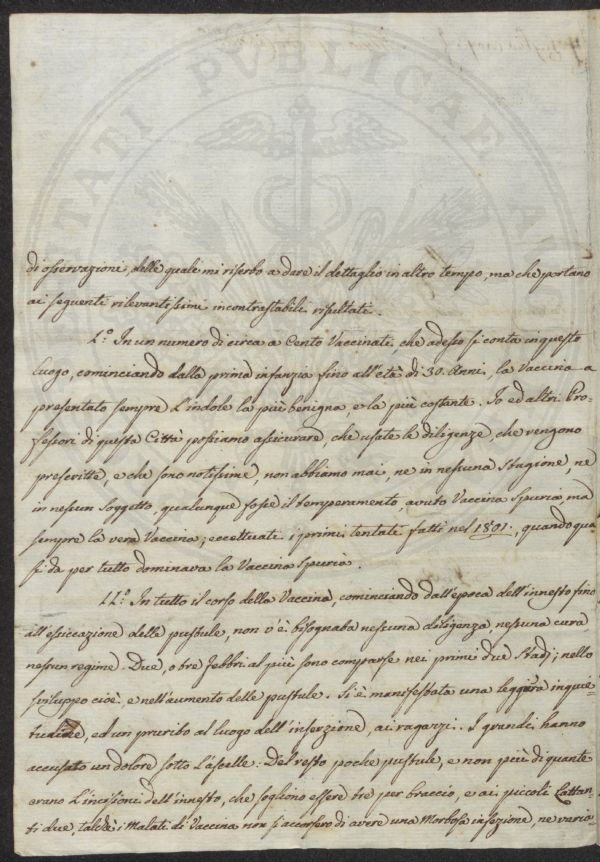 di osservazioni, delle quali mi riserbo a dare il dettaglio in altro tempo, ma che portano
ai seguenti rilevantissimi incontrastabili risultati.
I.° In un numero di circa a Cento Vaccinati, che adesso si conta in questo
luogo, cominciando dalla prima infanzia fino all'età di 30. Anni, la Vaccina a
presentato sempre l'indole la più benigna, e la più costante. Io ed altri Pro-
fessori di questa Città possiamo assicurare, che usate le diligenze, che vengono
prescritte, e che sono notissime, non abbiamo mai, ne in nessuna Stagione, ne
in nessun Soggetto, qualunque fosse il temperamento, avuto Vaccina Spuria ma
sempre la vera Vaccina; eccettuati i primi tentati fatti nel 1801., quando qua
si da per tutto dominava la Vaccina Spuria.
II.° In tutto il corso della Vaccina, cominciando dall'epoca dell'innesto fino
all'essicazione delle pustule, non v'è bisognata nessuna diligenza, nessuna cura
nessun regime. Due, o tre febbri al più sono comparse nei primi due Stadj; nello
sviluppo cioè, e nell'aumento delle pustule. Si è manifestata una leggiera inquie-
tudine, ed un prurito al luogo dell'inserzione, ai ragazzi. I grandi hanno
accusato un dolore sotto l'ascelle. Del resto poche pustule, e non più di quante
erano l'incisioni dell'innesto, che sogliono essere tre per braccio, e ai piccoli Lattan-
ti due, talchè i Malati di Vaccina non si accorsero di avere una Morbosa infezione, ne verio
PUBLICAE